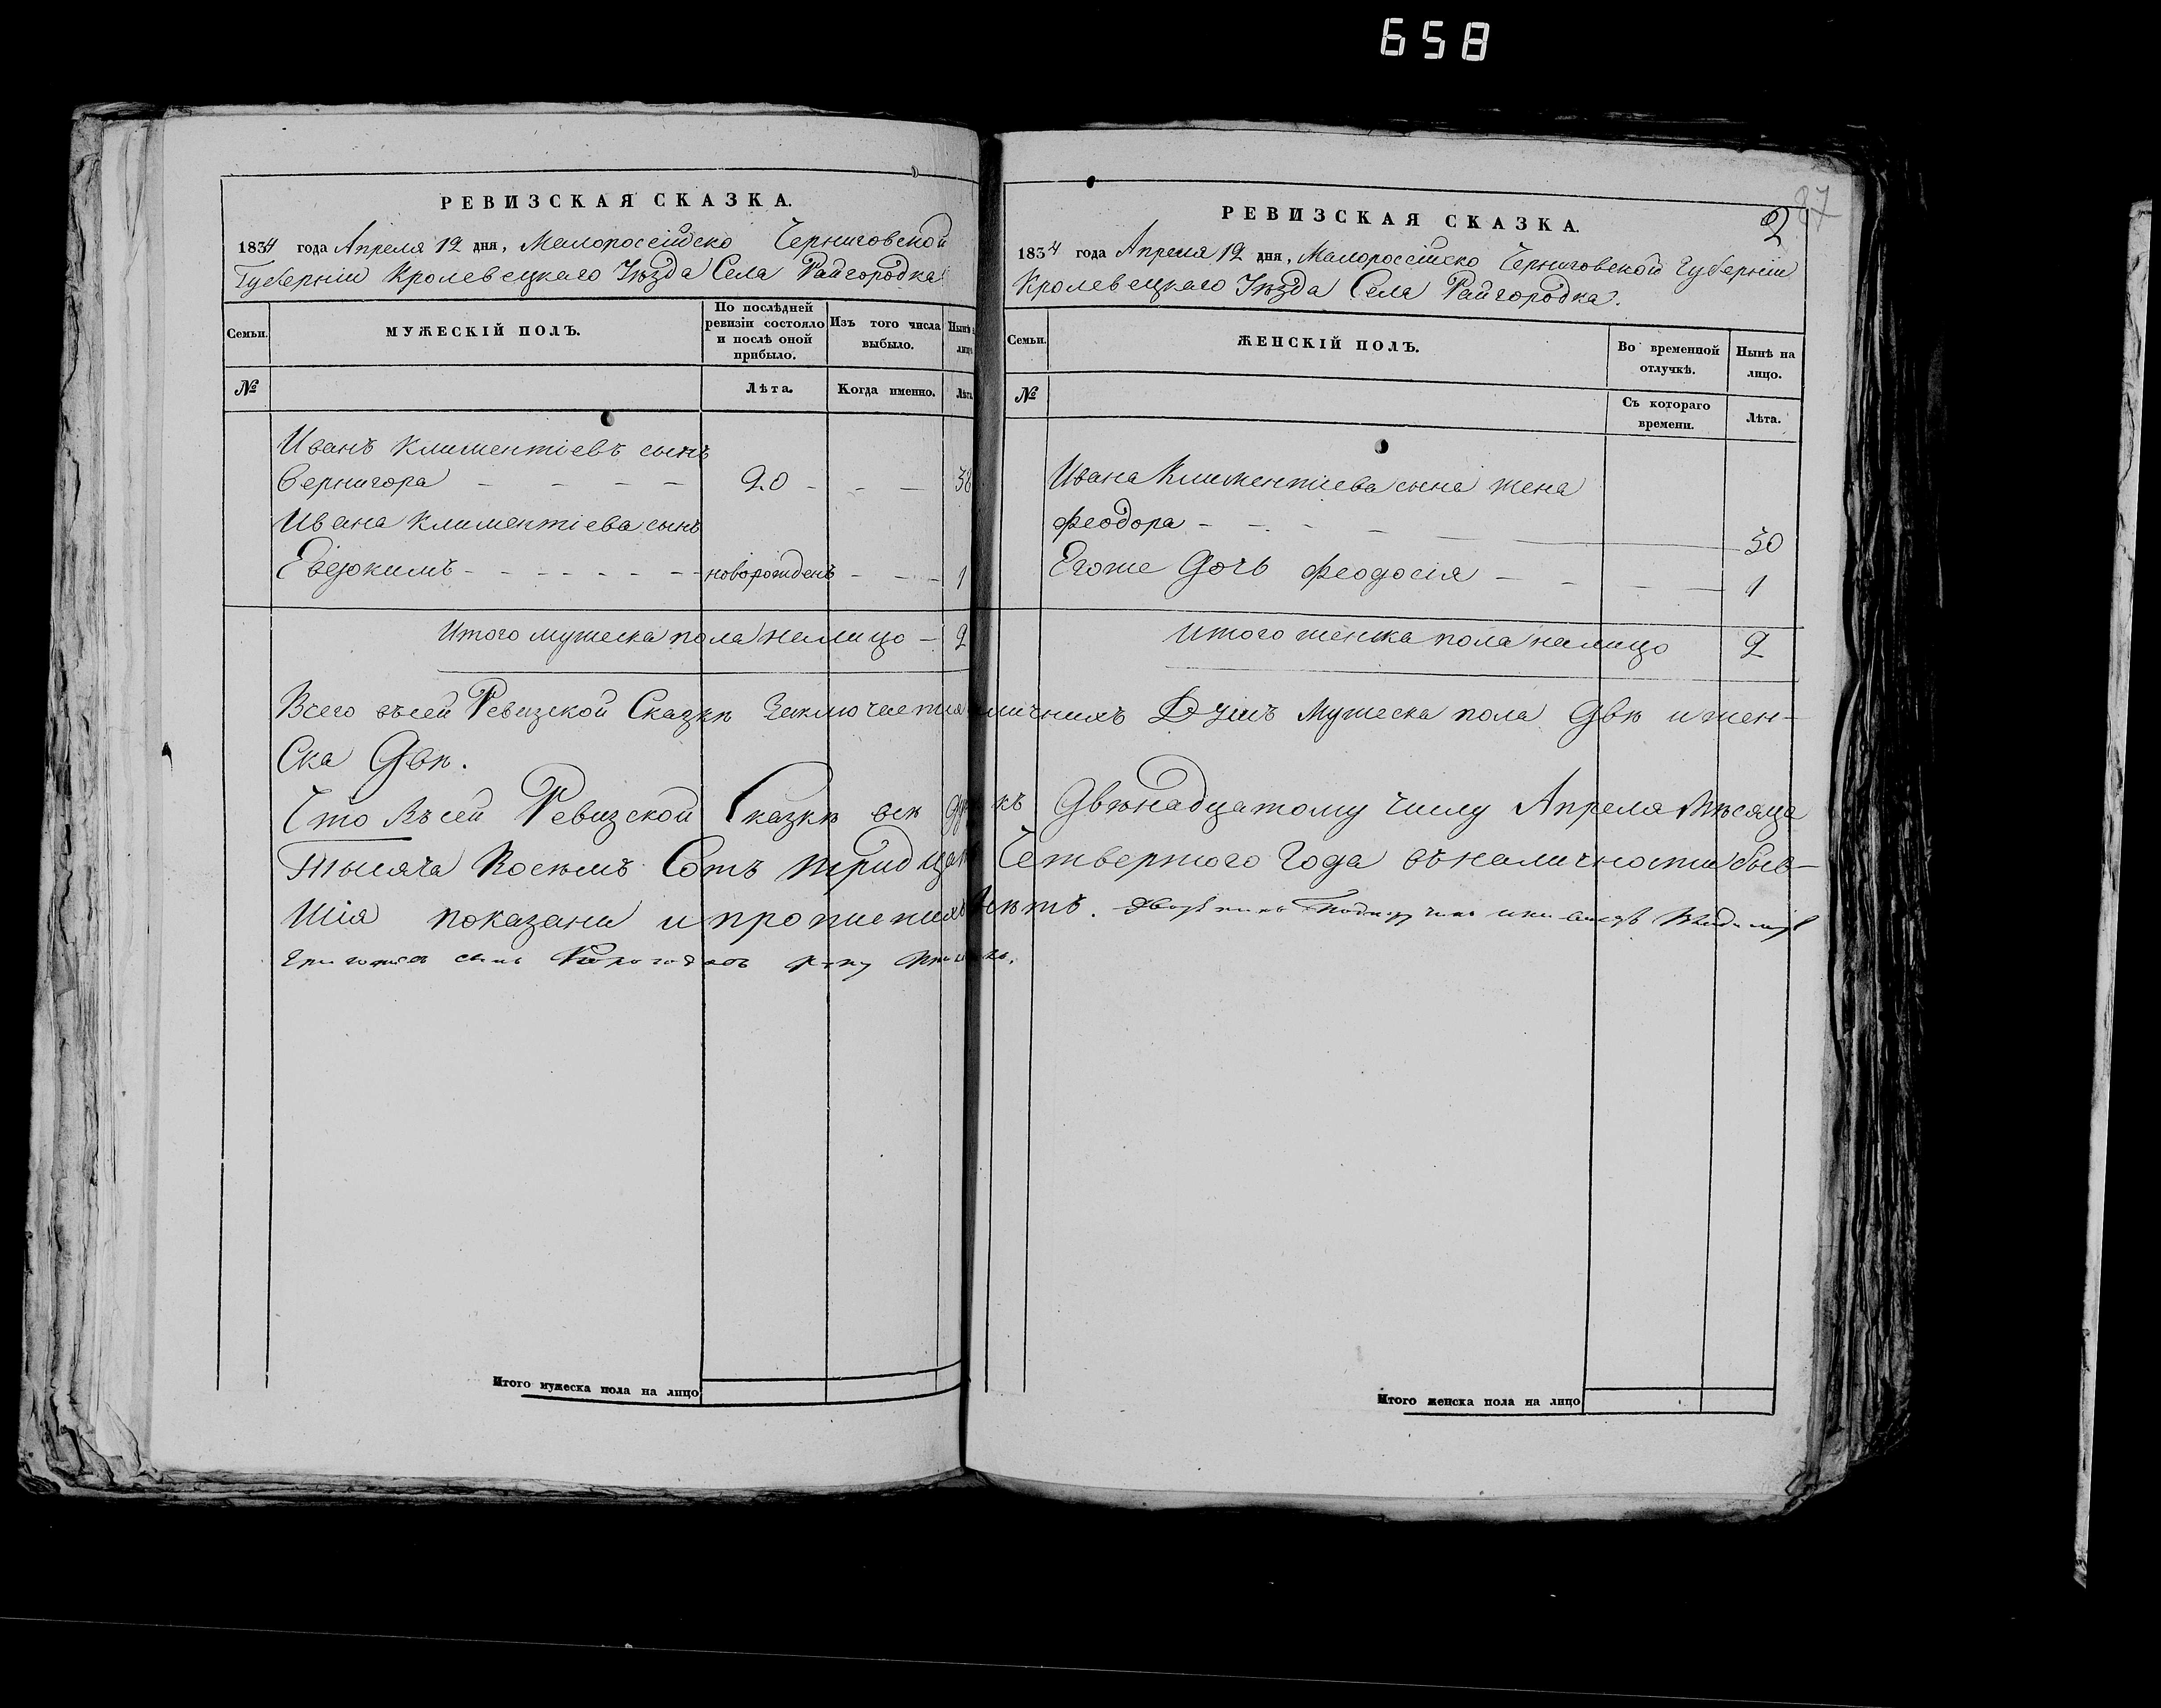 658
РЕВИЗСКАЯ СКАЗКА.
1834 года Апреля 12 дня, Малороссійско Черниговской
Губерніи Кролевецкаго Уѣзда Села Райгородка
Семьи.
МУЖЕСКІЙ ПОЛЪ.
По послѣдней
ревизіи состояло
и послѣ оной
прибыло.
Изъ того числа
выбыло.
Нынѣ
лицо
№
Лѣта.
Когда именно.
Лѣта
Иванъ Климентіевъ сынъ
Вернигора - - - - 20 - - - 36
Ивана Климентіева сынъ
Евдокимъ - - - - - - - новорожденъ - - - 1
Итого мужеска пола налицо - 2
РЕВИЗСКАЯ СКАЗКА.
87
2
1834 года Апреля 12 дня, Малороссійско Черниговской Губерніи
Кролевецкаго Уѣзда Села Райгородка.
Семьи.
ЖЕНСКІЙ ПОЛЪ.
Во временной
отлучкѣ.
Нынѣ на
лицо.
№
Съ котораго
времени.
Лѣта.
Ивана Климентіева сына жена
Феодора - - - - - 30
Егоже дочь Феодосія - - - - 1
Итого женска пола налицо 2
Всего въсей Ревизской Сказкѣ Заключается личнихъ Душъ Мужеска пола Двѣ и жен-
ска Двѣ.
Что Въсей Ревизской Сказкѣ всѣ къ Двѣнадцатому числу Апреля Мѣсяца
Тысяча Восемъ Сотъ тридцать Четвертого Года въналичности быв-
шія показани и прописнихъ нѣтъ. Дворянинъ Подпоручикъ
сынъ руку приложилъ.
Итого мужеска пола на лицо
Итого женска пола на лицо